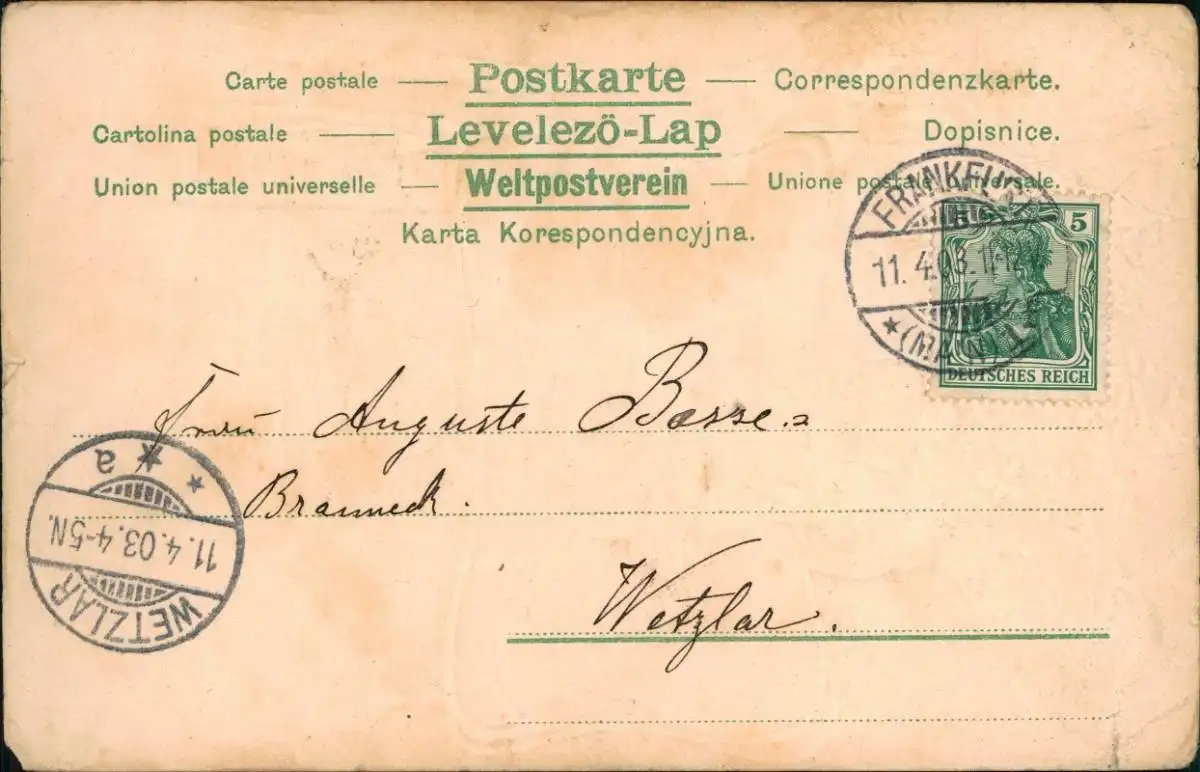 Carte postale — Postkarte — Correspondenzkarte.
Cartolina postale — Levelezö-Lap — Dopisnice.
Union postale universelle — Weltpostverein — Unione postale universale.
Karta Korespondencyjna.
FRANKFURT
11. 4.03.
* (MAIN) 1
5
DEUTSCHES REICH
Frau Auguste Basse.
WETZLAR
11.4.03.4-5N.
* * a
Wetzlar.